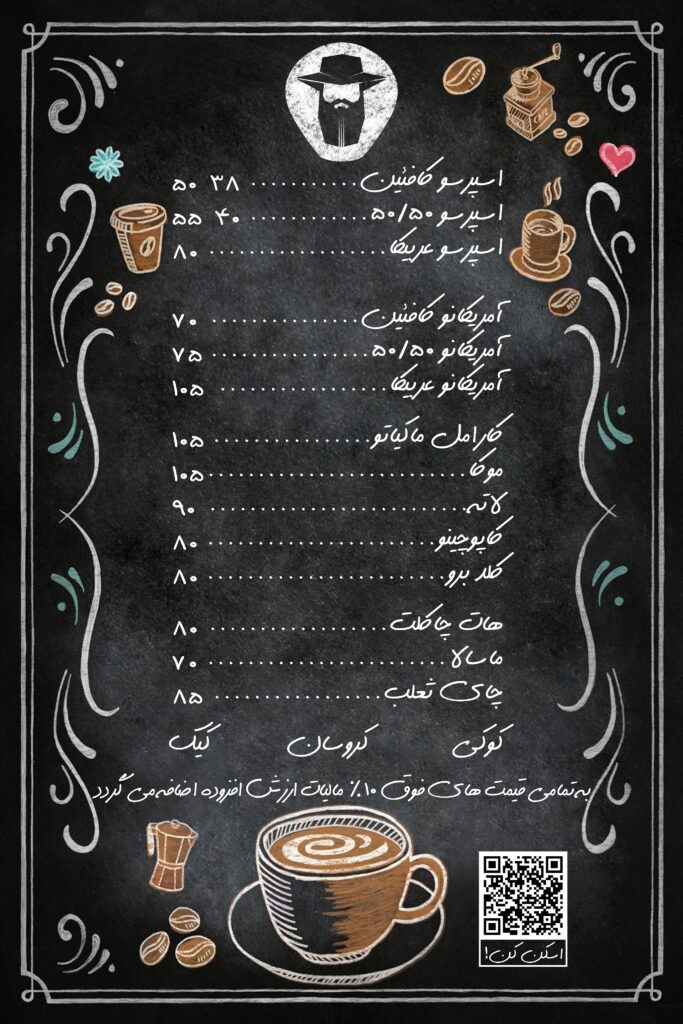 اسپرسو کافئین ........... ۳۸ ۵۰
اسپرسو ۵۰/۵۰ ........... ۴۰ ۵۵
اسپرسو عربیکا ................. ۸۰
آمریکانو کافئین ............... ۷۰
آمریکانو ۵۰/۵۰ ............... ۷۵
آمریکانو عربیکا ................ ۱۰۵
کارامل ماکیاتو ............... ۱۰۵
موکا ......................... ۱۰۵
لاته ......................... ۹۰
کاپوچینو ...................... ۸۰
کلد برو ...................... ۸۰
هات چاکلت .................. ۸۰
ماسالا ....................... ۷۰
چای ثعلب .................. ۸۵
کوکی کروسان کیک
به تمامی قیمت های فوق ۱۰٪ مالیات ارزش افزوده اضافه می گردد
اسکن کن!